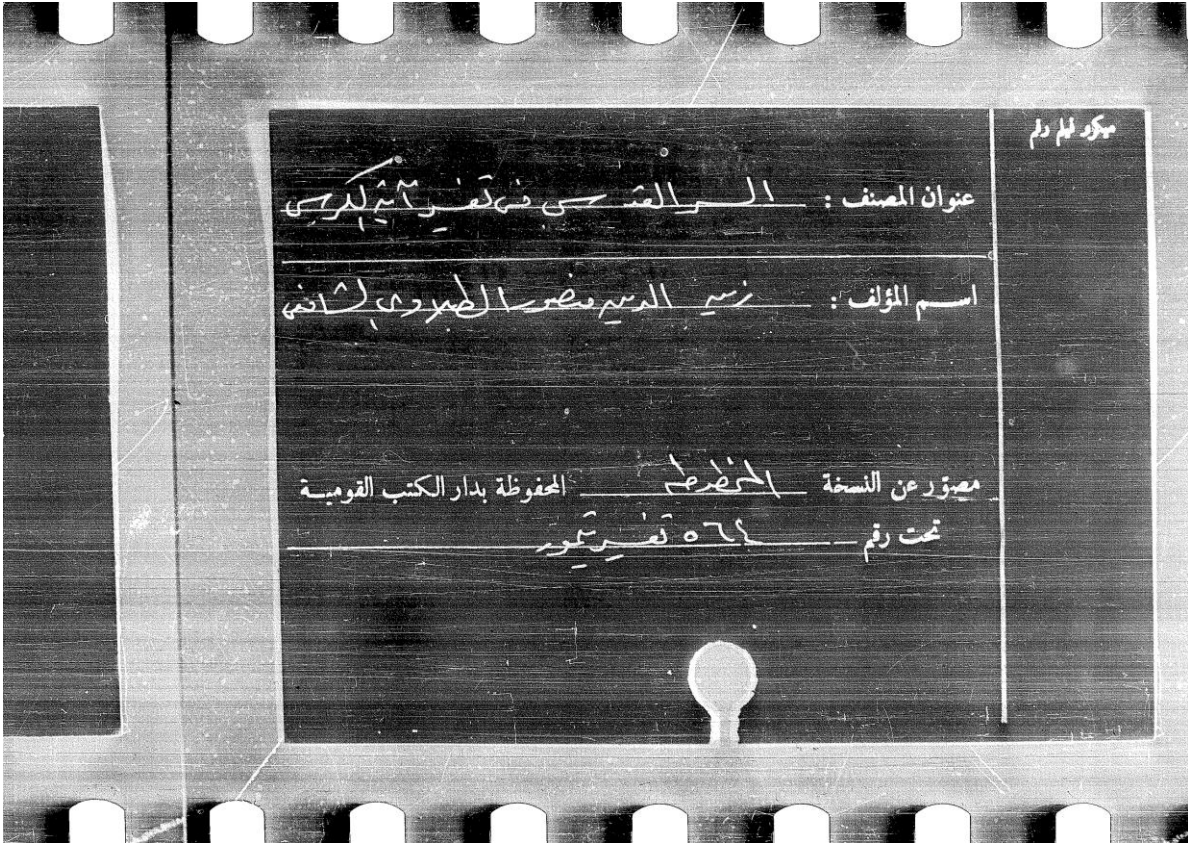 ميكرو فيلم رقم
عنوان المصنف : السر القدسى فى تفسير آية الكرسى
اسم المؤلف : زين الدين منصور الطبلاوى الشافعى
مصور عن النسخة المخطوطة المحفوظة بدار الكتب القومية
تحت رقم ٥٦٤ تفسير تيمور